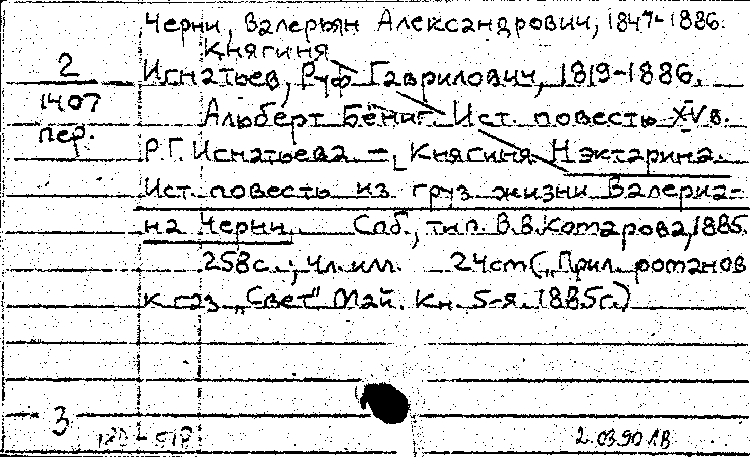 Черни, Валерьян Александрович, 1847-1886.
Княгиня
2
Игнатьев, Руф Гаврилович, 1819-1886.
1407
Альберт Бёниг. Ист. повесть XV в.
пер.
Р.Г. Игнатьева. – Княгиня Нэктарина.
Ист. повесть из груз жизни Валериа-
на Черни. Спб, тип. В.В. Комарова, 1885.
258с.; 4л. илл. 24cm („Прил. романов
к газ „Свет" Май. Кн. 5-я. 1885г.)
3
2.03.90 ЛВ